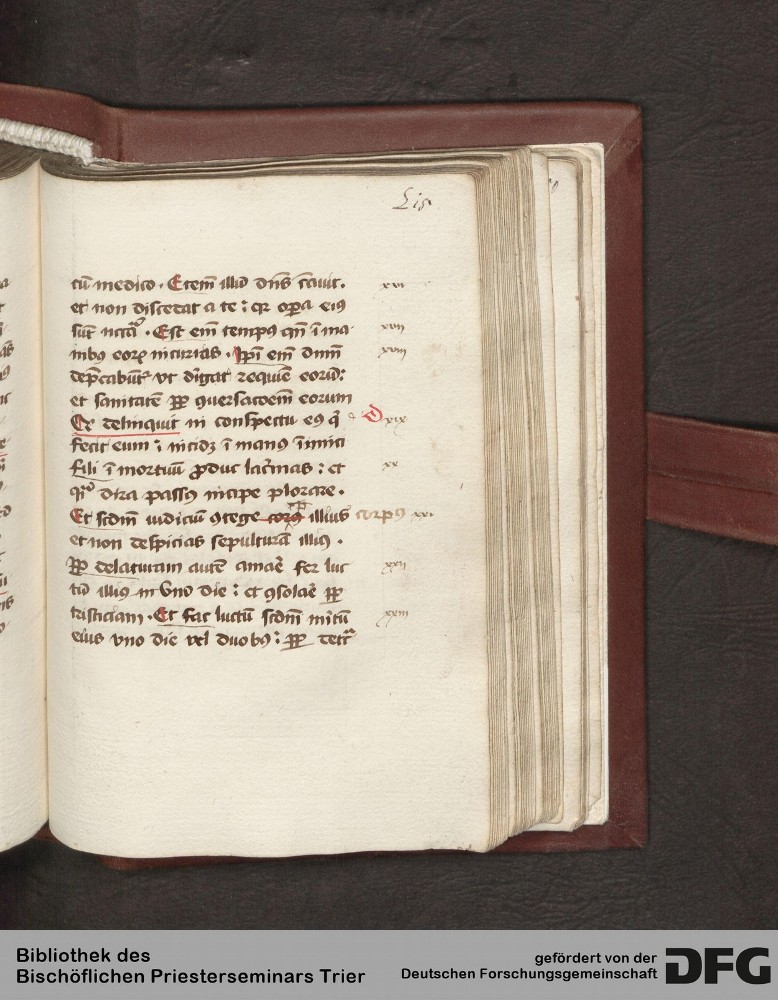 Lis
tu᷑ medico · Etem̅ illu̅ dn̅s c̅auit · xvi
et non discedat a te : qr oꝑa eiꝰ
su̅t ncc̅a · Est em̅ tempꝰ qn̅ i̅ ma xvii
nibus eorꝝ incurras · Ip̅i em̅ dn̅m xviii
dep̅cabu̅t᷑ vt di̅gat requie̅ eoru̅ :
et sanitate̅ ꝓp ꝯuersac̅oem̅ eorum
Qr delinquit in conspectu eꝰ q̅ D xix
fecit eum : incidꝫ i̅ manꝰ i̅mici
fili i̅ mortuu̅ ꝓduc lac̅mas : et xx
q̅ dira passꝰ incipe plorare ·
Et scdm̅ iudiciu̅ ꝯtege illius corpꝰ xxi
et non despicias sepultura̅ illiꝰ ·
ꝓp delaturam aute̅ amar̅ fer luc xxii
tu̅ illiꝰ in vno die : et ꝯsolar̅ ꝓp
tristiciam · Et fac luctu̅ scdm̅ m̅itu̅ xxiii
eius vno die vel duobꝰ : ꝓp detr̅
Bibliothek des
Bischöflichen Priesterseminars Trier
gefördert von der
Deutschen Forschungsgemeinschaft
DFG